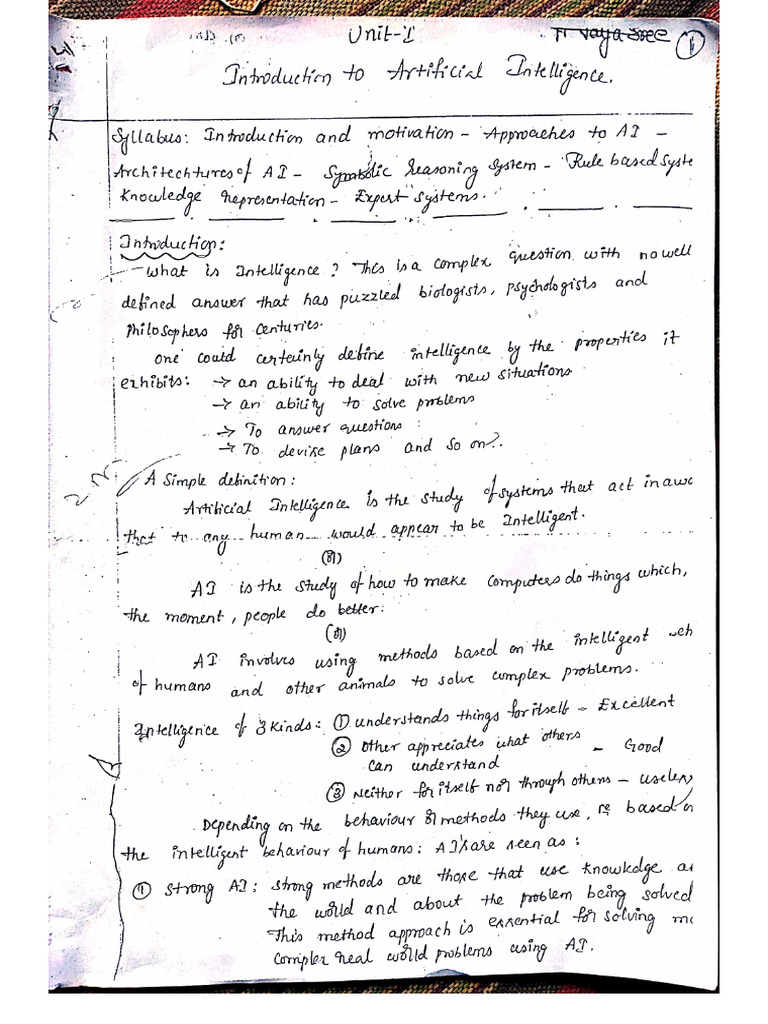 Unit-I
①
Introduction to Artificial Intelligence.
Syllabus: Introduction and motivation - Approaches to AI -
Architechtures of AI - Symbolic Reasoning System - Rule based Syste
Knowledge Representation - Expert Systems.
Introduction:
What is Intelligence? This is a complex question with no well
defined answer that has puzzled biologists, psychologists and
Philosophers for centuries.
one could certainly define intelligence by the properties it
exhibits: → an ability to deal with new situations
→ an ability to solve problems
→ To answer questions
→ To devise plans and so on?
A Simple definition:
Artificial Intelligence is the study of systems that act in a wa
that to any human would appear to be Intelligent.
(or)
AI is the study of how to make computers do things which,
the moment, people do better:
(or)
AI involves using methods based on the intelligent beh
of humans and other animals to solve complex problems.
Intelligence of 3 kinds: ① understands things for itself - Excellent
② other appreciates what others - Good
can understand
③ Neither for itself nor through others - useless
Depending on the behaviour or methods they use, is based on
the intelligent behaviour of humans: AI's are seen as:
① Strong AI: strong methods are those that use knowledge a
the world and about the problem being solved
This method approach is essential for solving m
complex real world problems using AI.